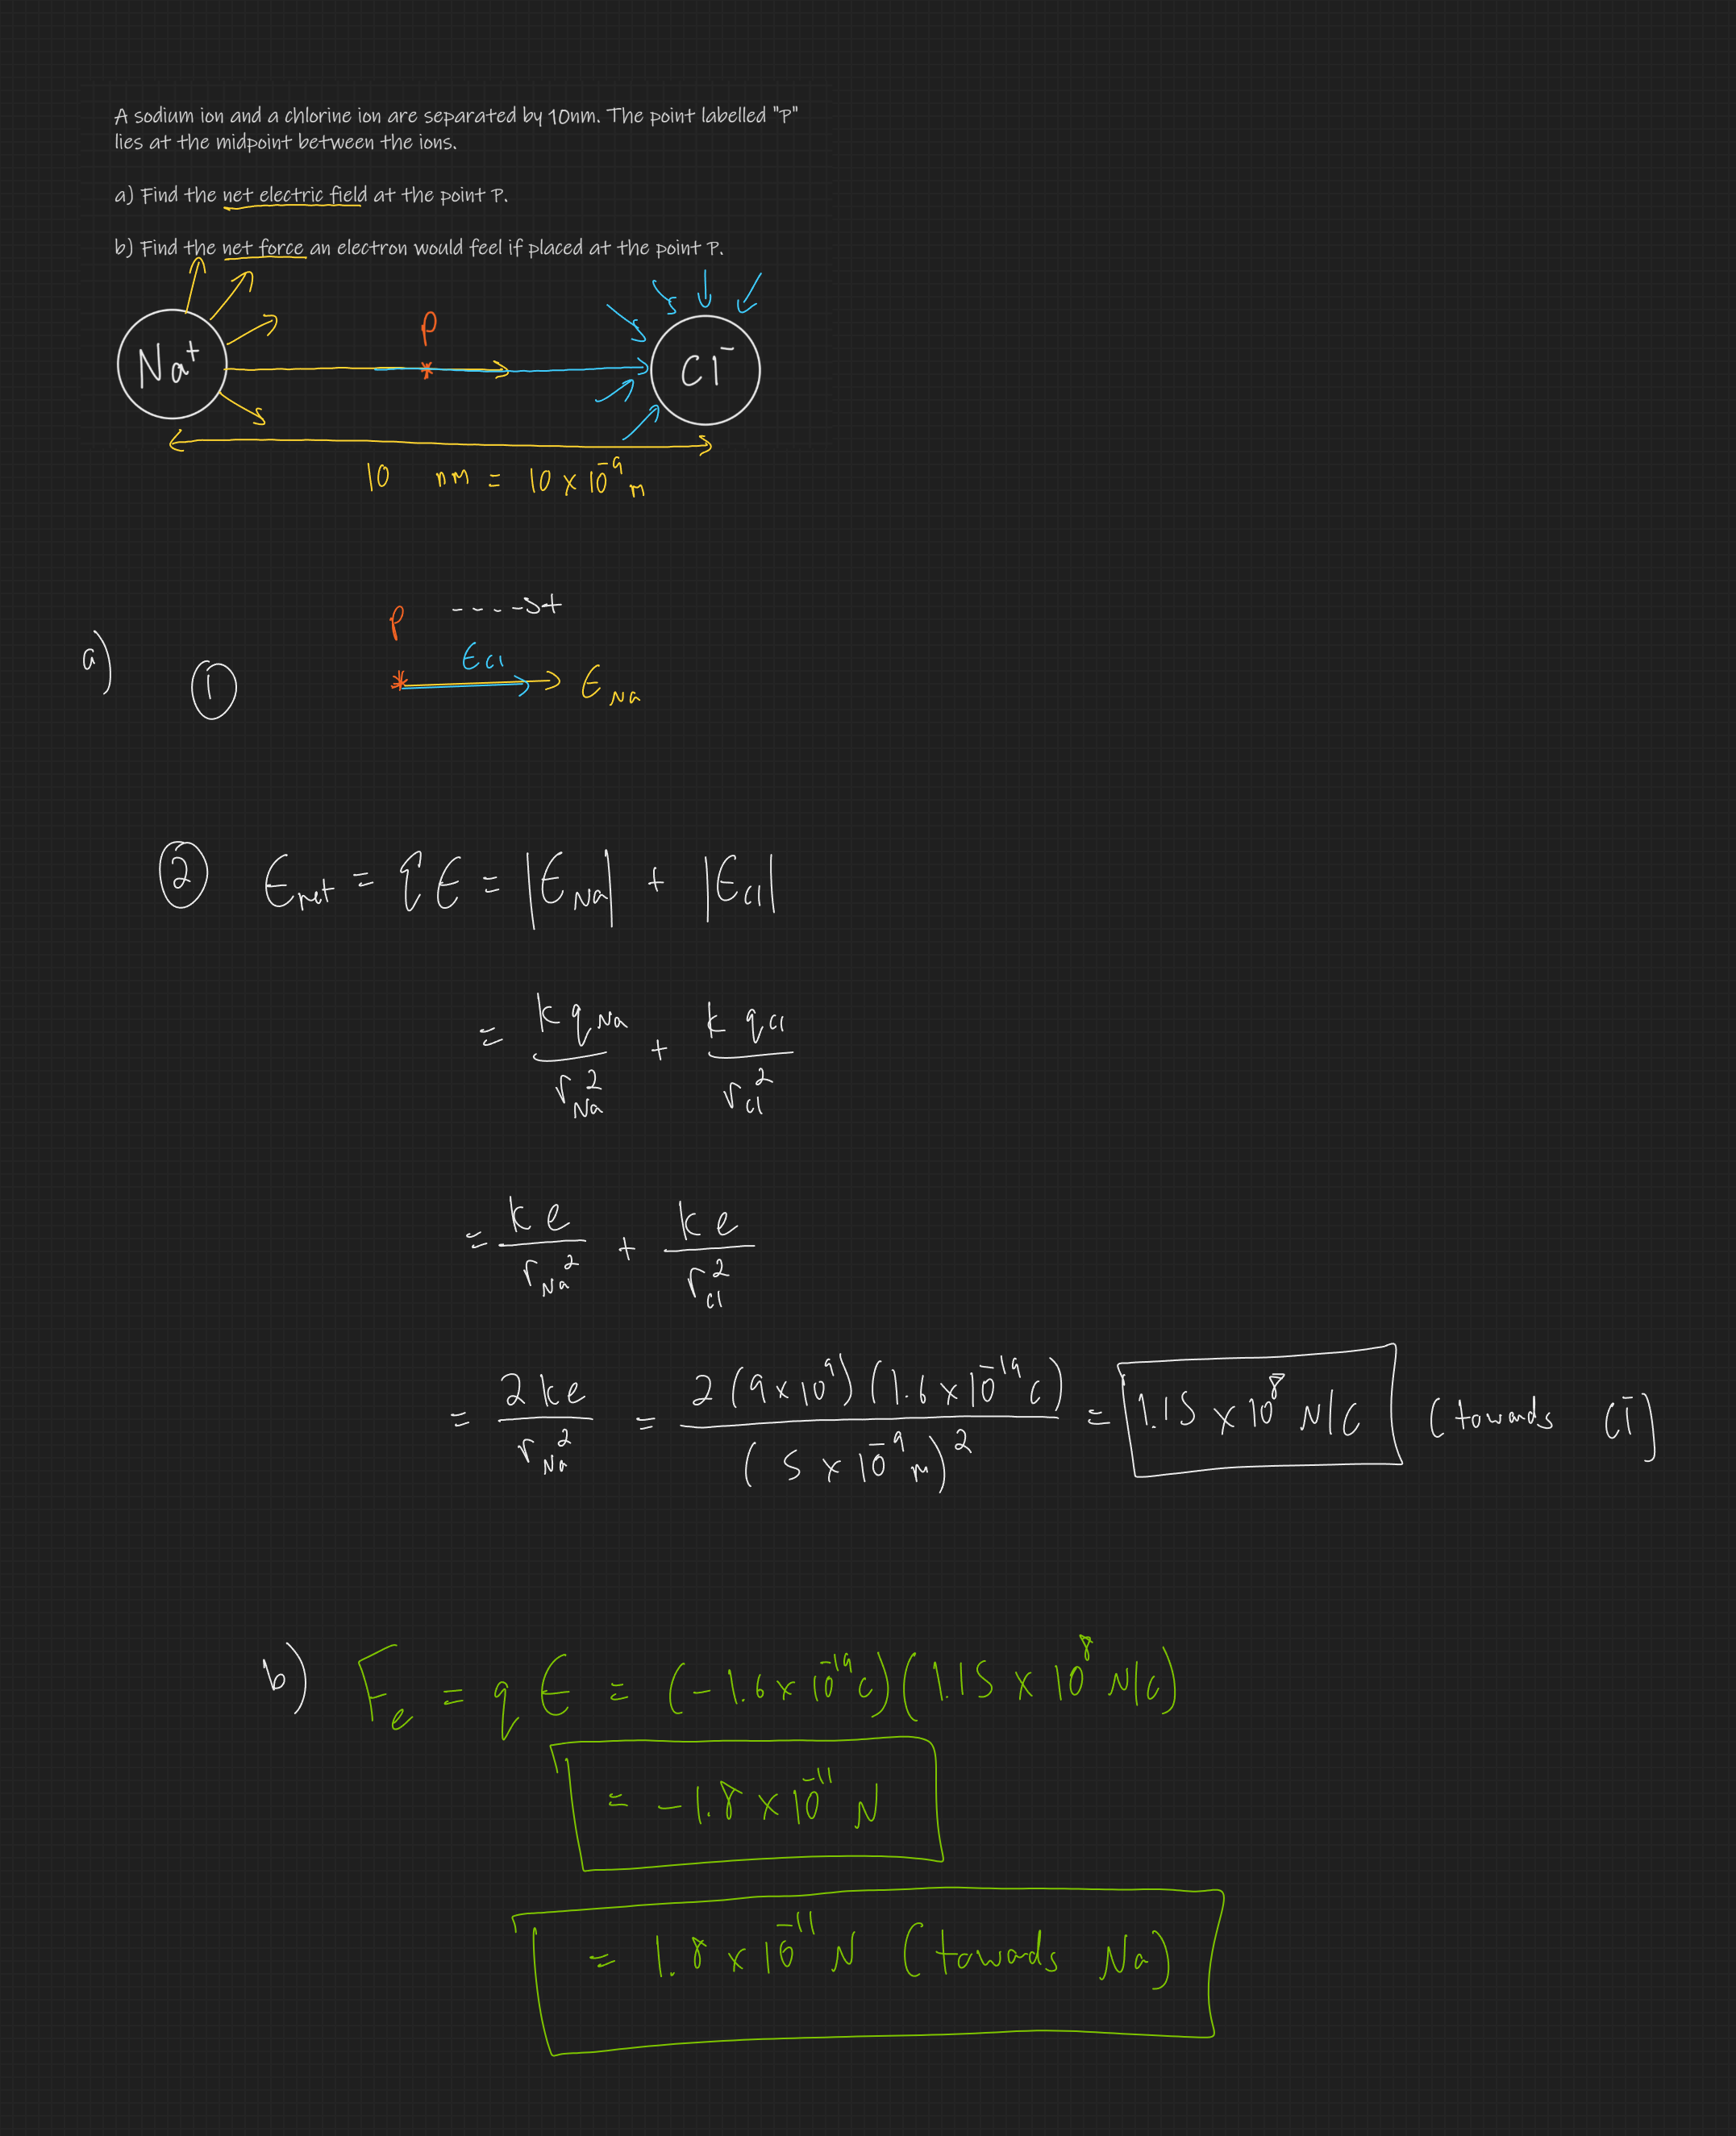 A sodium ion and a chlorine ion are separated by 10nm. The point labelled "P"
lies at the midpoint between the ions.
a) Find the net electric field at the point P.
b) Find the net force an electron would feel if placed at the point P.
P
Na⁺
Cl⁻
10 nm = 10 × 10⁻⁹ m
P ----->+
a)
①
E_Cl
E_Na
② E_net = ξE = |E_Na| + |E_Cl|
= k q_Na / r_Na² + k q_Cl / r_Cl²
= k e / r_Na² + k e / r_Cl²
= 2 k e / r_Na² = 2 (9 × 10⁹) (1.6 × 10⁻¹⁹ C) / (5 × 10⁻⁹ m)² = 1.15 × 10⁸ N/C (towards Cl⁻)
b) F_e = q E = (-1.6 × 10⁻¹⁹ C) (1.15 × 10⁸ N/C)
= -1.8 × 10⁻¹¹ N
= 1.8 × 10⁻¹¹ N (towards Na)